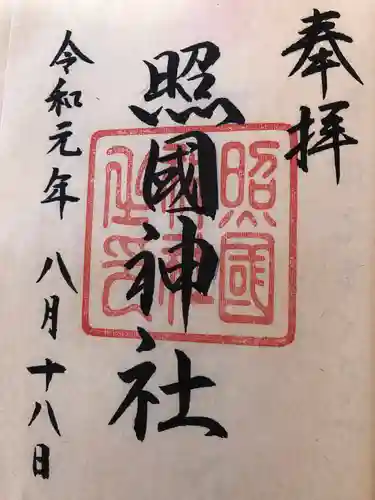 奉拝
照國神社
令和元年 八月十八日
照國
神社
之印